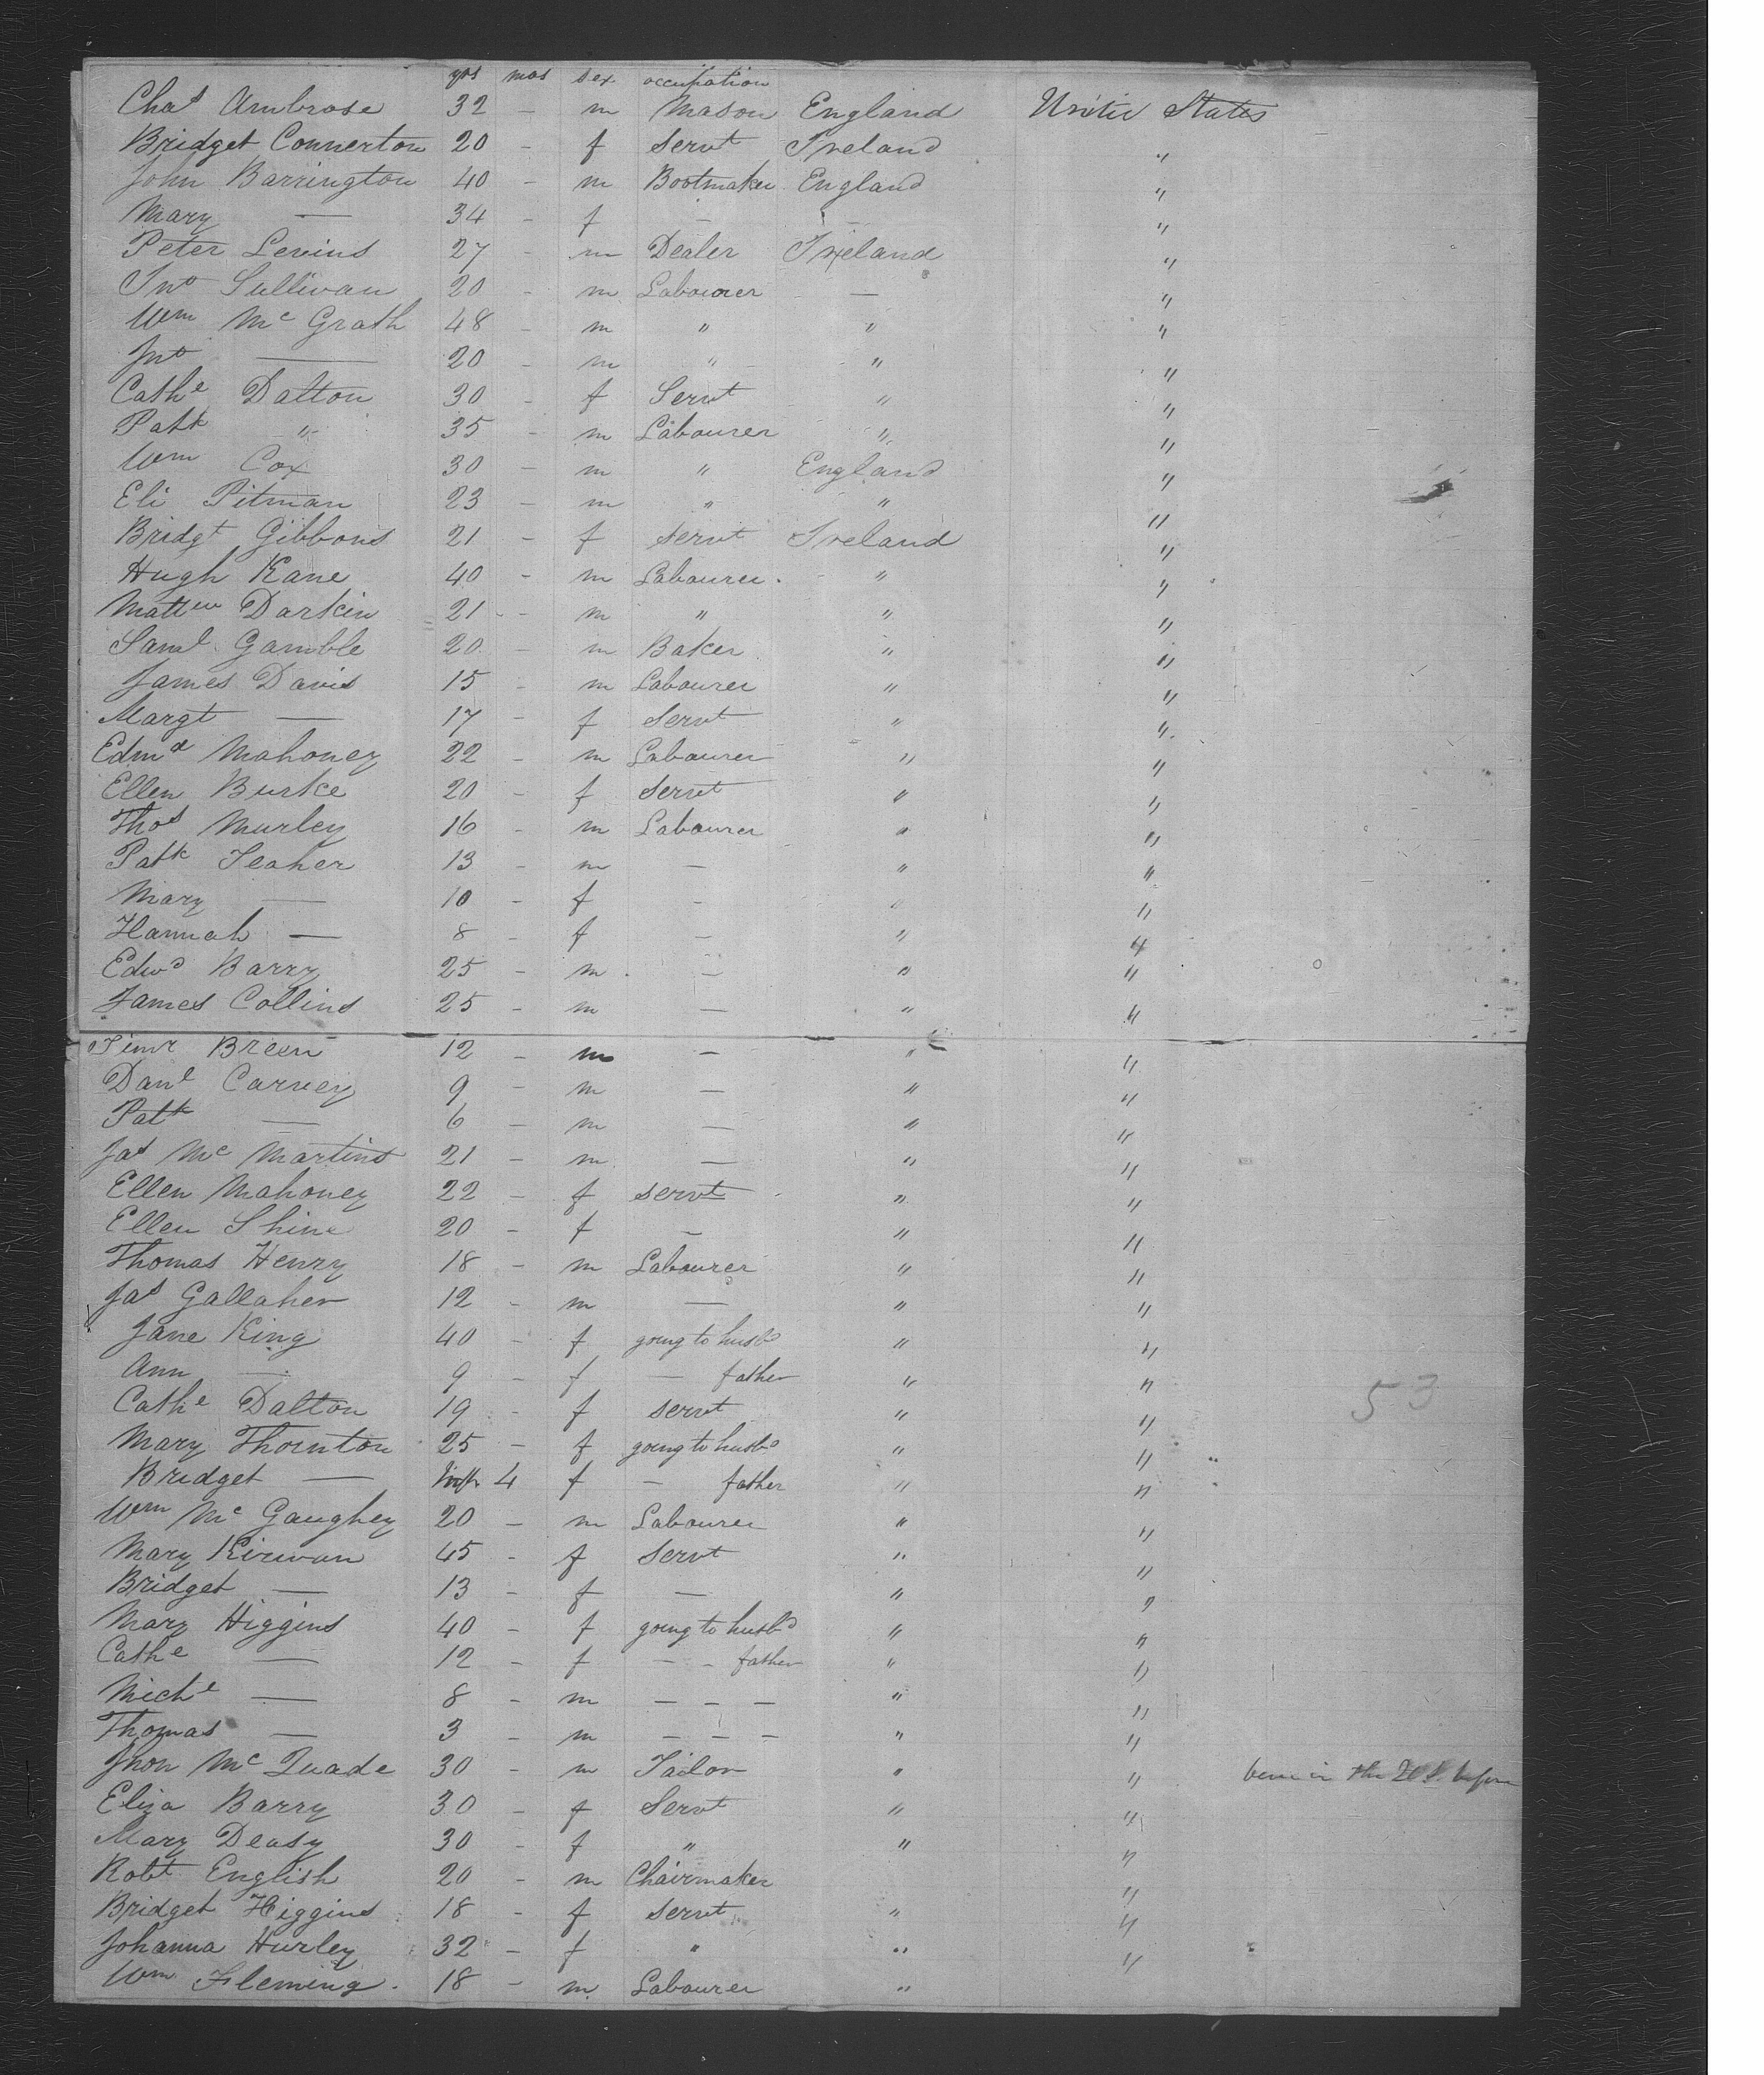 yrs mos sex occupation
Chas Ambrose 32 - m Mason England United States
Bridget Connerton 20 - f Servt Ireland "
John Barrington 40 - m Bootmaker England "
Mary — 34 - f - - "
Peter Levins 27 - m Dealer Ireland "
Jno Sullivan 20 - m Labourer — "
Wm McGrath 48 - m " " "
Jno — 20 - m " " "
Cathe Dalton 30 - f Servt " "
Patk " 35 - m Labourer " "
Wm Cox 30 - m " England "
Eli Pitman 23 - m " " "
Bridgt Gibbons 21 - f servt Ireland "
Hugh Kane 40 - m Labourer " "
Mattew Darkin 21 - m " " "
Saml Gamble 20 - m Baker " "
James Davis 15 - m Labourer " "
Margt — 17 - f Servt " "
Edmd Mahoney 22 - m Labourer " "
Ellen Burke 20 - f Servt " "
Thos Murley 16 - m Labourer " "
Patk 13 - m — " "
Mary — 10 - f - " "
Hannah — 8 - f — " "
Edwd Barry 25 - m — " "
James Collins 25 - m — " "
Breen 12 - m — " "
Danl Carney 9 - m — " "
Patk — 6 - m — " "
Jas McMartins 21 - m — " "
Ellen Mahoney 22 - f servt " "
Ellen Shine 20 - f — " "
Thomas Henry 18 - m Labourer " "
Jas Gallaher 12 - m — " "
Jane King 40 - f going to husbd " "
Ann — 9 - f — father " "
Cathe Dalton 19 - f servt " "
Mary Thornton 25 - f going to husbd " "
Bridget — Inft 4 f — father " "
Wm McGaughey 20 - m Labourer " "
Mary Kirwan 45 - f Servt " "
Bridget — 13 - f — " "
Mary Higgins 40 - f going to husbd " "
Cathe — 12 - f - - father " "
Michl — 8 - m - - - " "
Thomas — 3 - m - - - " "
Jhon McQuade 30 - m Tailor " " been in the U.S. before
Eliza Barry 30 - f Servt " "
Mary Deasy 30 - f " " "
Robt English 20 - m Chairmaker "
Bridget Higgins 18 - f servt " "
Johanna Hurley 32 - f " " "
Wm Fleming 18 - m Labourer "
53